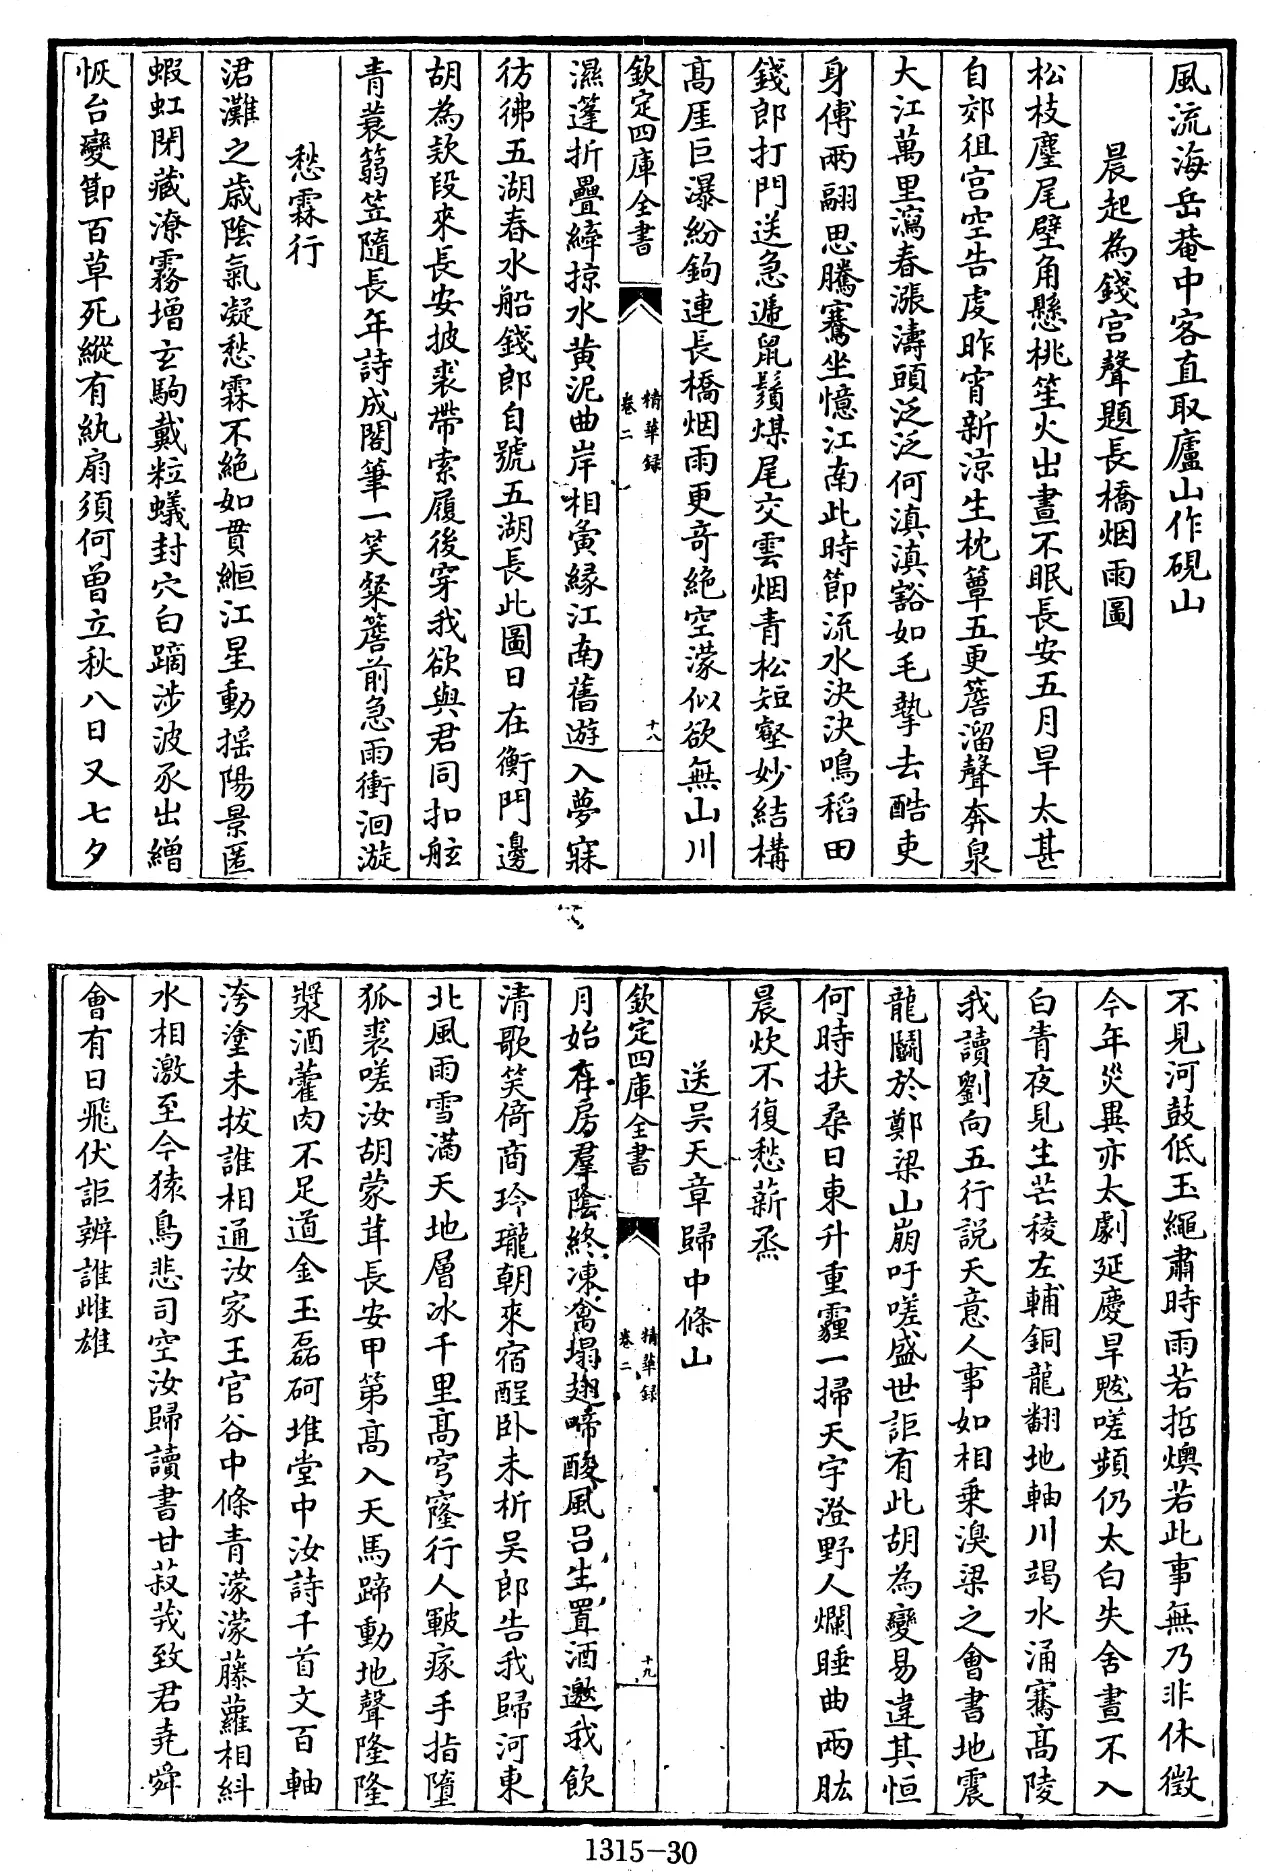 風流海岳菴中客直取廬山作硯山
晨起為錢宫聲題長橋烟雨圖
松枝麈尾壁角懸桃笙火出晝不眠長安五月旱太甚
自郊徂宫空告虔昨宵新涼生枕簟五更簷溜聲奔泉
大江萬里瀉春漲濤頭泛泛何滇滇豁如毛摯去酷吏
身傅兩翮思騰騫坐憶江南此時節流水決決鳴稻田
錢郎打門送急遞鼠鬚煤尾交雲烟青松短壑妙結構
高厓巨瀑紛鉤連長橋烟雨更奇絶空濛似欲無山川
欽定四庫全書
精華録
卷二
十八
濕篷折疊縴掠水黄泥曲岸相夤縁江南舊遊入夢寐
彷彿五湖春水船錢郎自號五湖長此圖日在衡門邊
胡為欵段來長安披裘帶索履後穿我欲與君同扣舷
青蓑篛笠隨長年詩成閣筆一笑粲簷前急雨衝洄漩
愁霖行
涒灘之歲陰氣凝愁霖不絶如貫緪江星動揺陽景匿
蝦虹閉藏潦霧增玄駒戴粒蟻封穴白蹢涉波豕出繒
恢台變節百草死縱有紈扇須何曽立秋八日又七夕
不見河鼓低玉繩肅時雨若哲燠若此事無乃非休徵
今年災異亦太劇延慶旱魃嗟頻仍太白失舍晝不入
白青夜見生芒稜左輔銅龍翻地軸川竭水涌騫高陵
我讀劉向五行説天意人事如相乗湨梁之會書地震
龍鬭於鄭梁山崩吁嗟盛世詎有此胡為變易違其恒
何時扶桑日東升重霾一掃天宇澄野人爛睡曲兩肱
晨炊不復愁薪烝
送吴天章歸中條山
欽定四庫全書
精華録
卷二
十九
月始在房羣陰終凍禽塌翅啼酸風吕生置酒邀我飲
清歌笑倚商玲瓏朝來宿酲卧未析吴郎告我歸河東
北風雨雪滿天地層冰千里高穹窿行人皸瘃手指墮
狐裘嗟汝胡蒙茸長安甲第高入天馬蹄動地聲隆隆
漿酒藿肉不足道金玉磊砢堆堂中汝詩千首文百軸
洿塗未拔誰相通汝家王官谷中條青濛濛藤蘿相糾
水相激至今猿鳥悲司空汝歸讀書甘菽茙致君堯舜
會有日飛伏詎辨誰雌雄
1315-30